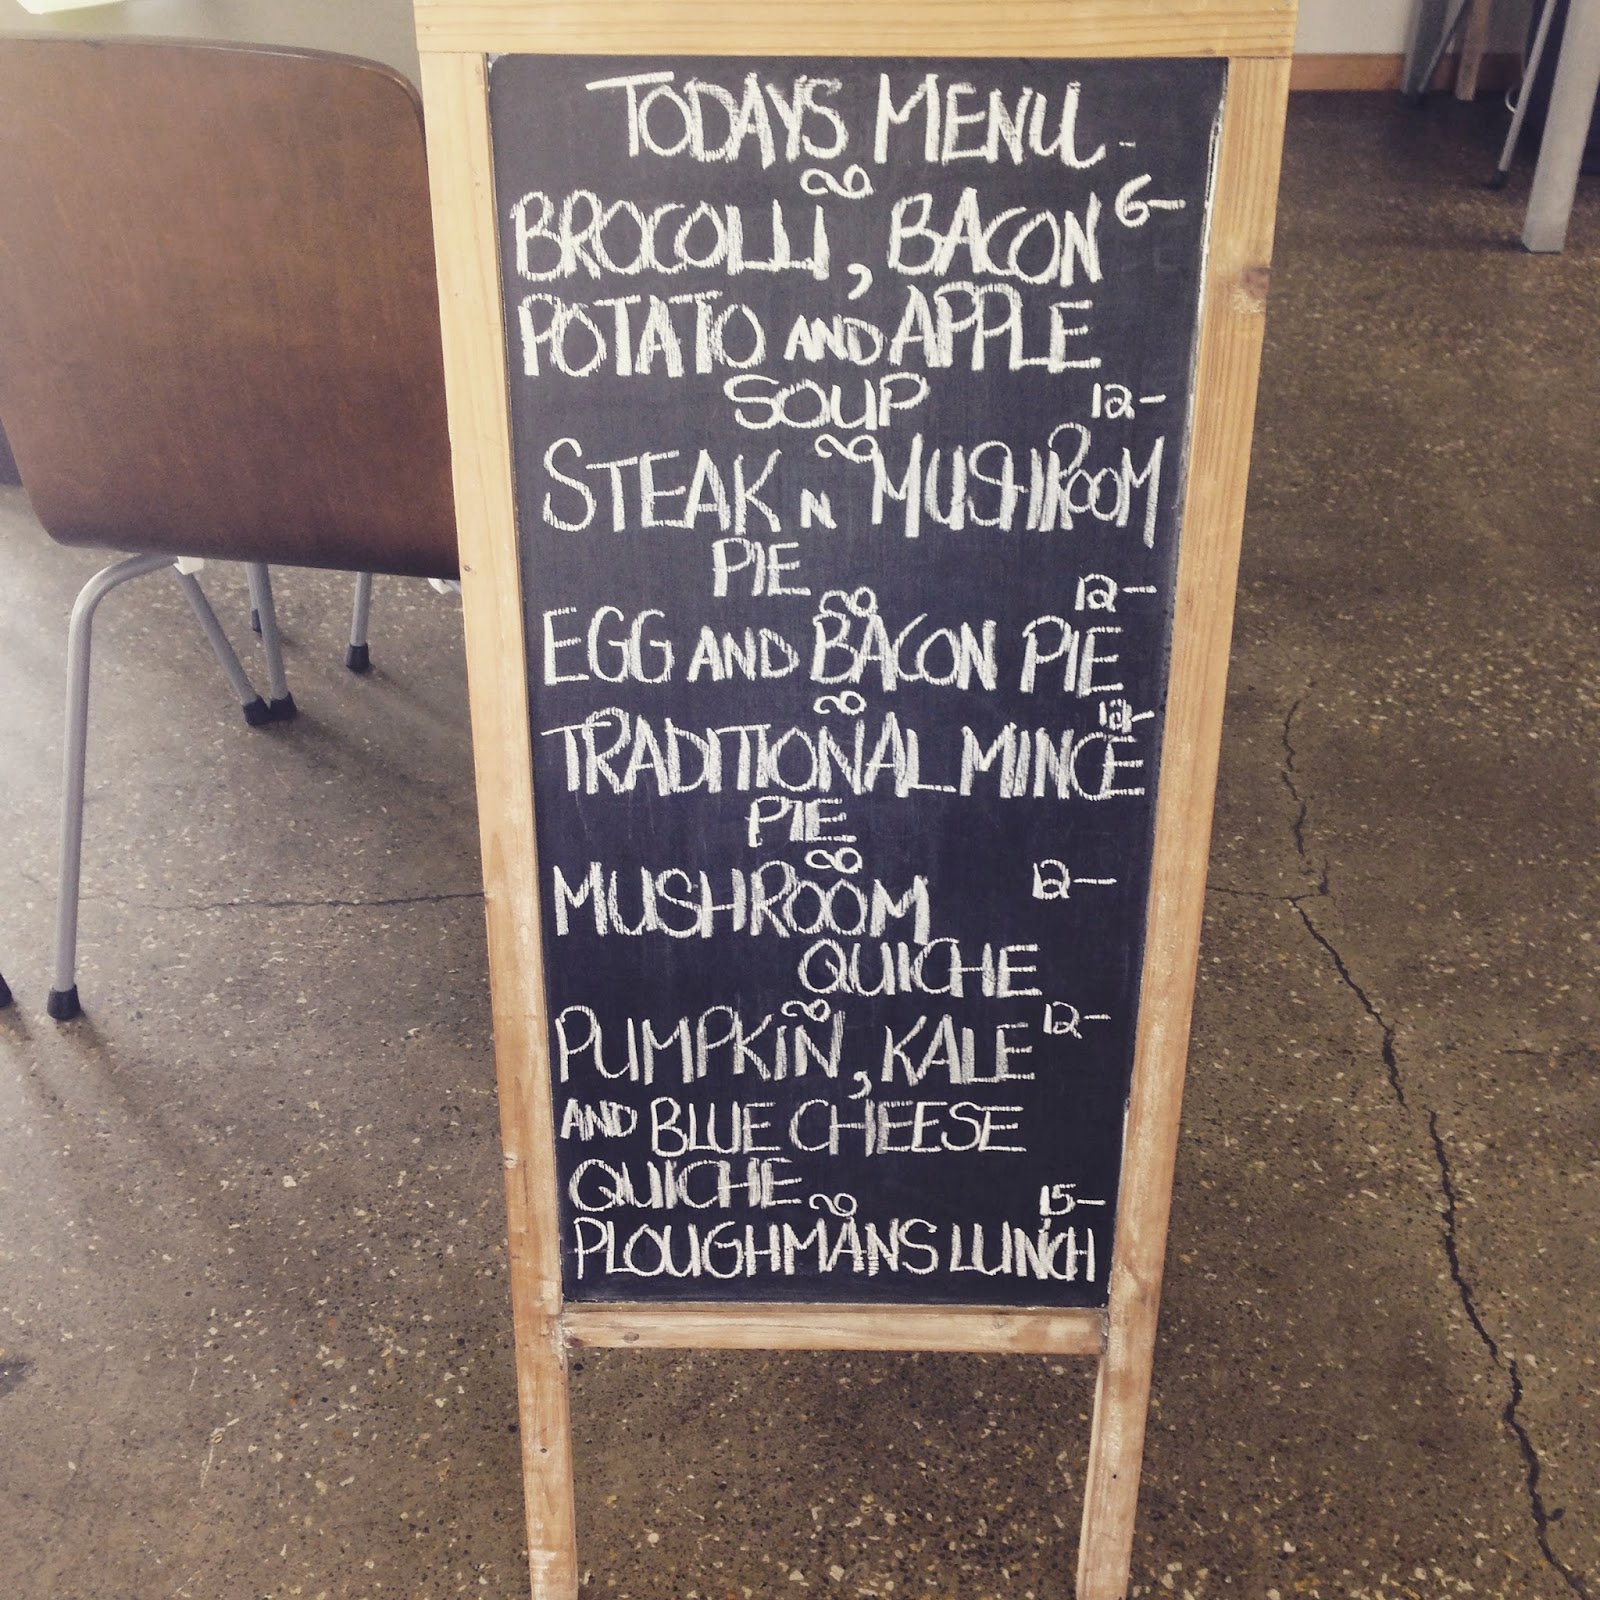 TODAYS MENU -
BROCOLLI, BACON 6-
POTATO AND APPLE
SOUP
12-
STEAK N MUSHROOM
PIE
12-
EGG AND BACON PIE
12-
TRADITIONAL MINCE
PIE
MUSHROOM 12-
QUICHE
PUMPKIN, KALE 12-
AND BLUE CHEESE
QUICHE
15-
PLOUGHMANS LUNCH